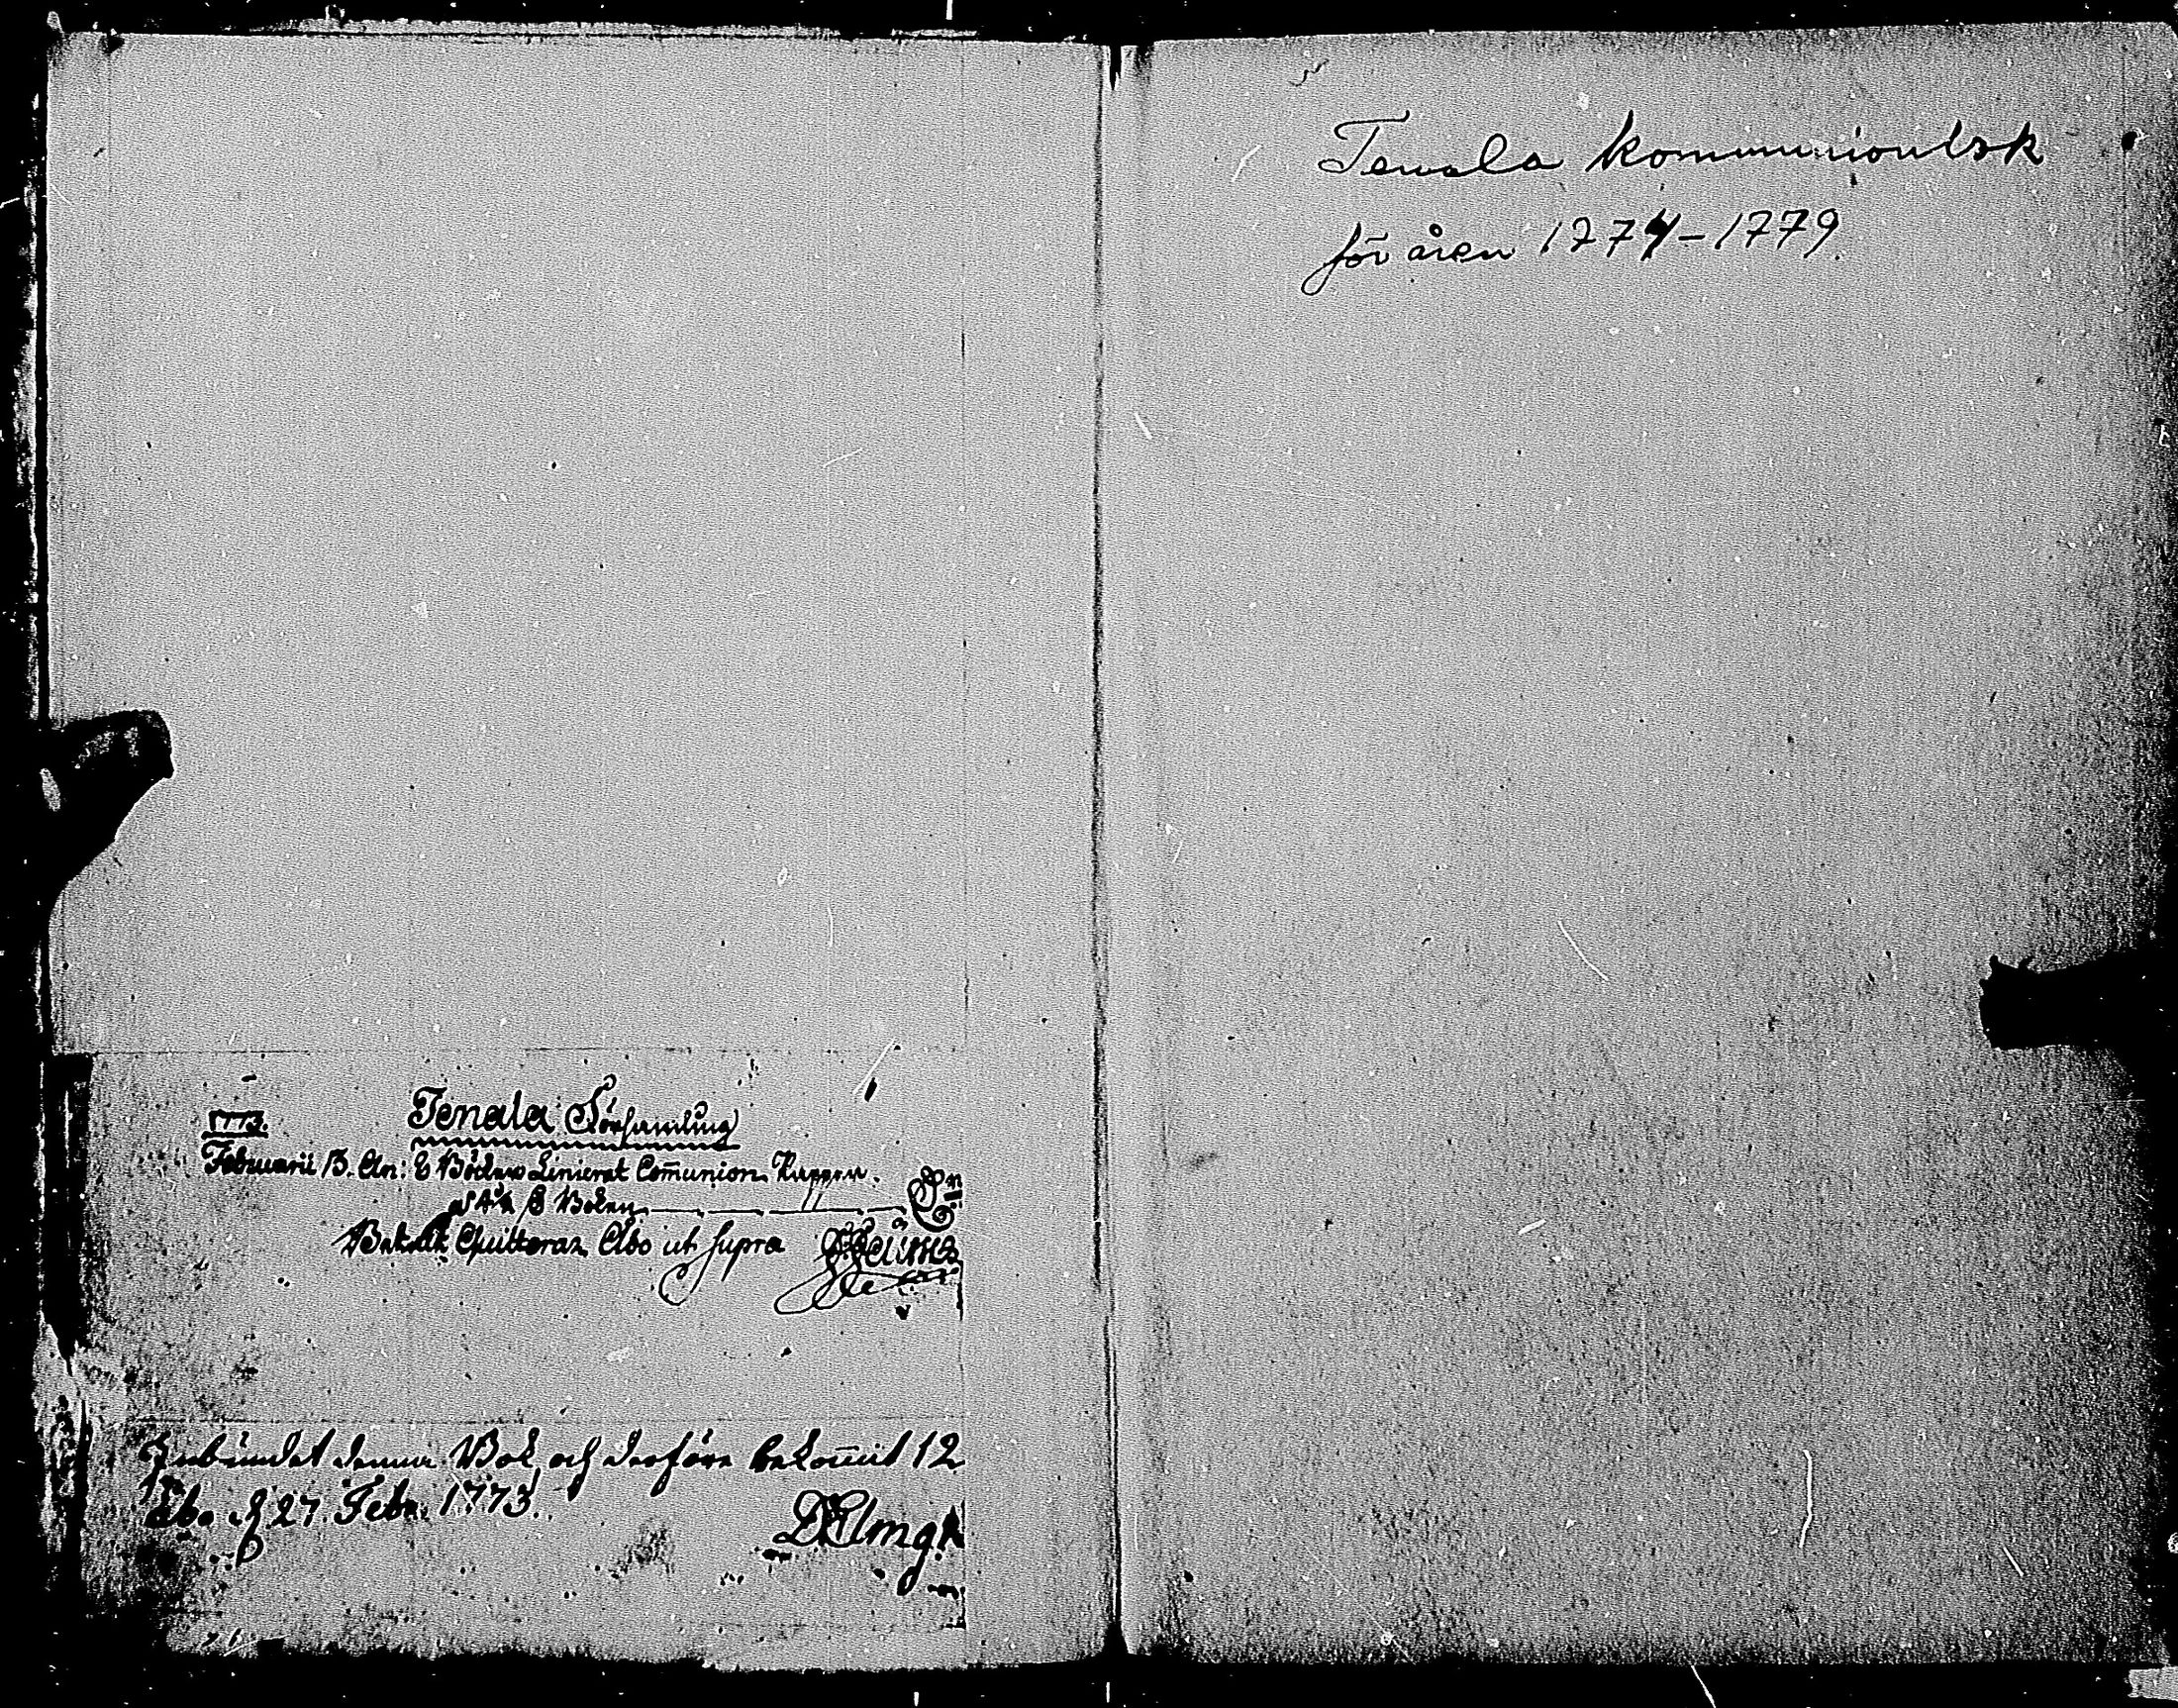 1773.
Tenala Församling
Februarii 13. An: 6 Böcker Linierat Communion Papper.
Boken
Betalt Quitteras Åbo ut supra
Inbundet denna Bok och derföre bekommit 12
Åbo d 27 Febr. 1773.
Tenala kommunionbok
för åren 1774-1779.